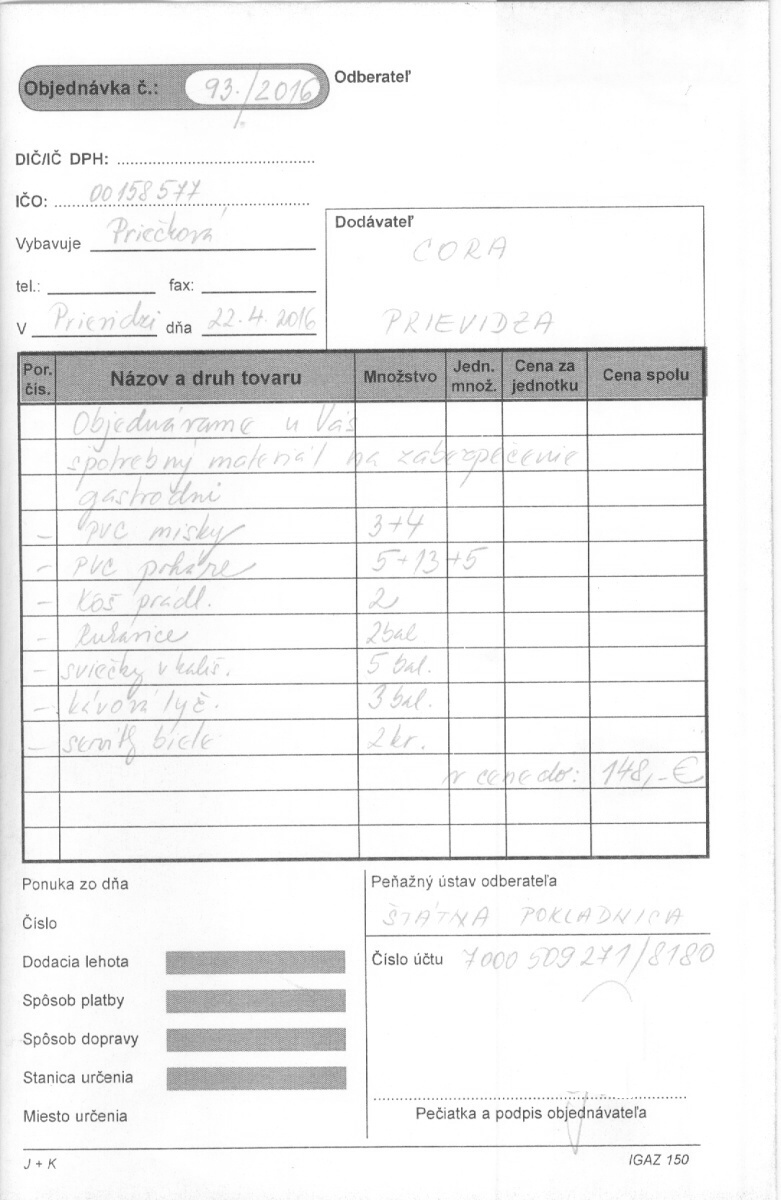 Objednávka č.: 93./2016
Odberateľ
DIČ/IČ DPH:
IČO: 00158577
Vybavuje Priečková
tel.: fax:
V Prievidzi dňa 22.4.2016
Dodávateľ
CORA
PRIEVIDZA
Por. čís. Názov a druh tovaru Množstvo Jedn. množ. Cena za jednotku Cena spolu
Objednávame u Vás
spotrebný materiál na zabezpečenie
gastrodni
- PVC misky 3+4
- PVC poháre 5+13+5
- Kôš prádl. 2
- Rukavice 2bal
- sviečky v kališ. 5 bal.
- kávová lyž. 3 bal.
- servítky biele 2kr.
v cene do: 148,-€
Ponuka zo dňa
Číslo
Dodacia lehota
Spôsob platby
Spôsob dopravy
Stanica určenia
Miesto určenia
Peňažný ústav odberateľa
ŠTÁTNA POKLADNICA
Číslo účtu 7000509271/8180
Pečiatka a podpis objednávateľa
J + K
IGAZ 150